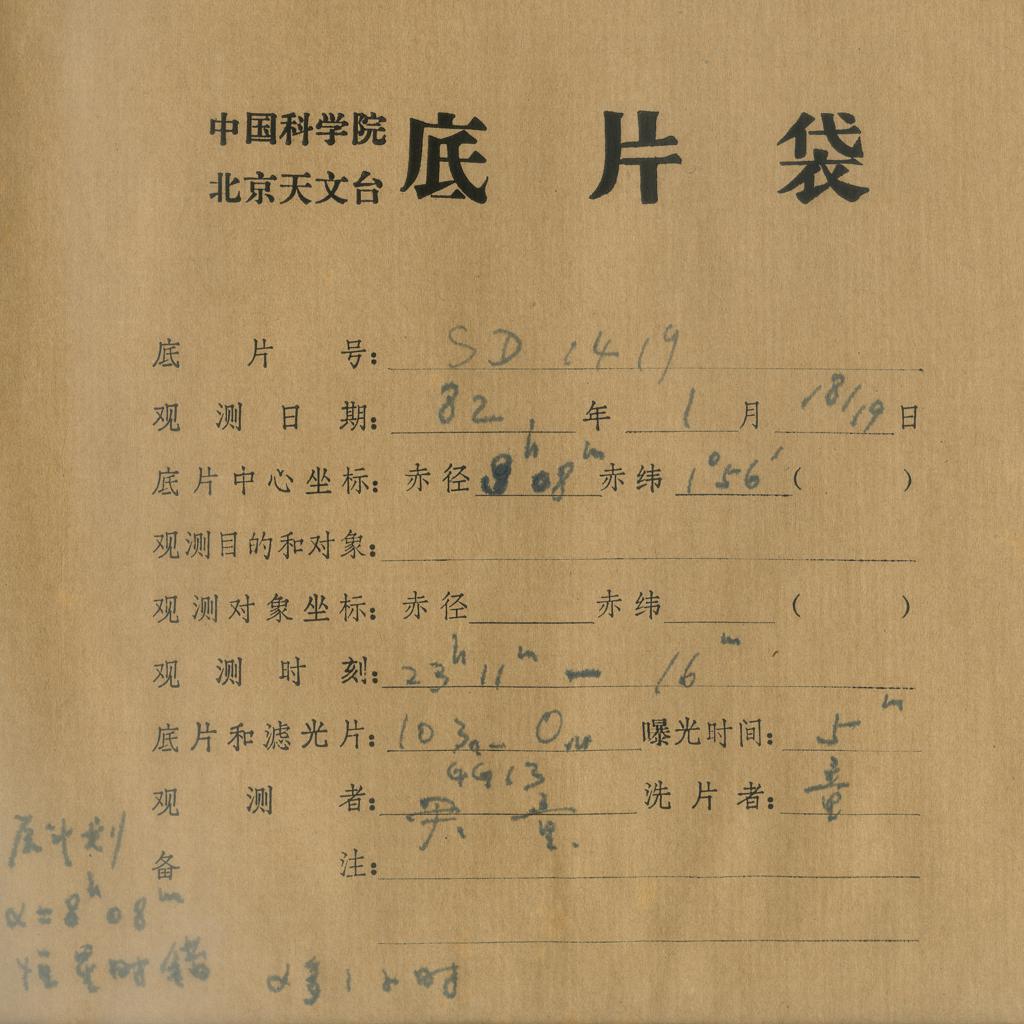 中国科学院
北京天文台
底片袋
底片号: SD 1419
观测日期: 82年 1月 18/19日
底片中心坐标: 赤径 9ʰ08ᵐ 赤纬 1°56′ ( )
观测目的和对象:
观测对象坐标: 赤径 赤纬 ( )
观测时刻: 23ʰ11ᵐ — 16ᵐ
底片和滤光片: 103a-O 曝光时间: 5ᵐ
4413
观测者: 童 洗片者: 童
备注:
原计划
α=8ʰ08ᵐ
恒星时错 α 1小时